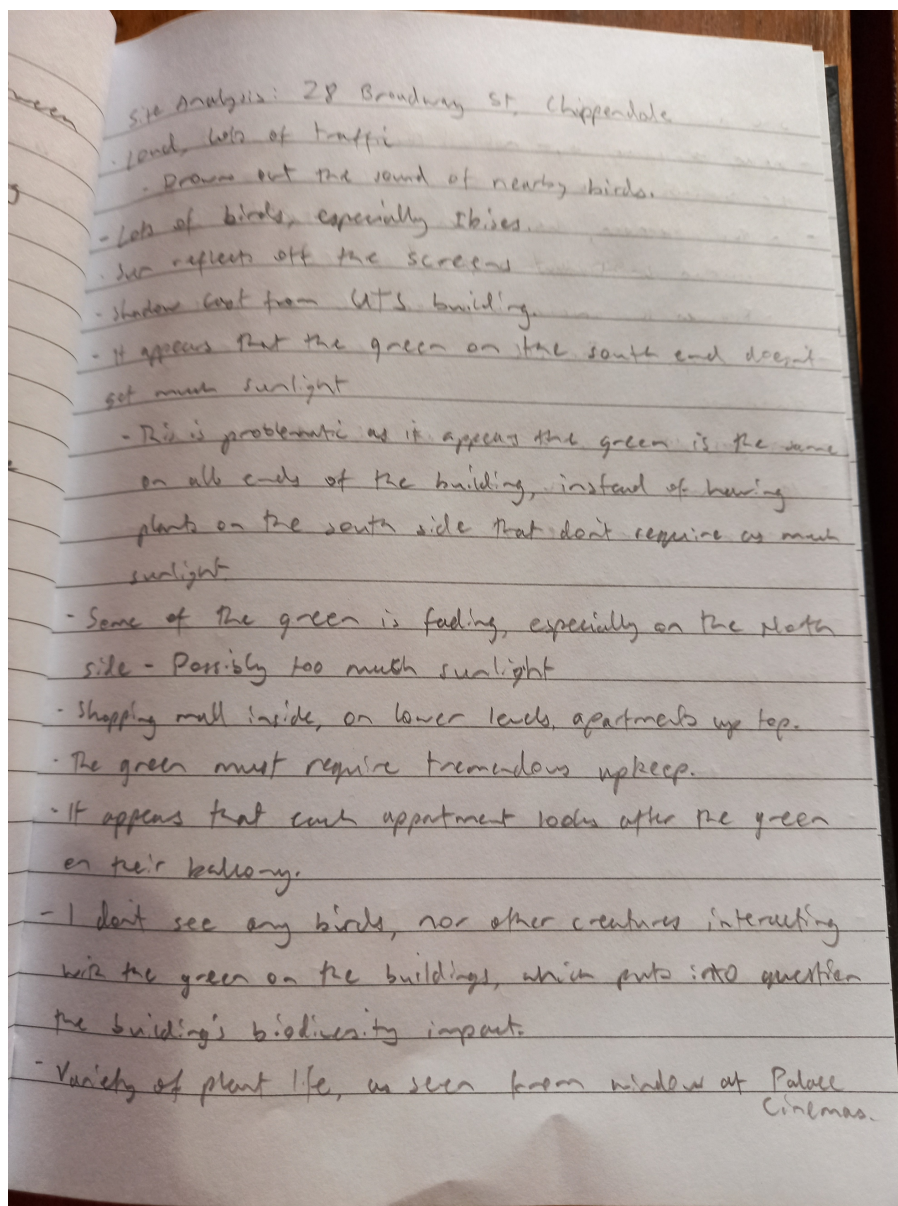 Site Analysis: 28 Broadway St, Chippendale
· Loud, lots of traffic
- Drowns out the sound of nearby birds.
- Lots of birds, especially Ibises.
· Sun reflects off the screens
- Shadow cast from UTS building.
- It appears that the green on the south end doesn't
get much sunlight
- This is problematic as it appears the green is the same
on all ends of the building, instead of having
plants on the south side that don't require as much
sunlight.
- Some of the green is fading, especially on the North
side - Possibly too much sunlight
- Shopping mall inside, on lower levels, apartments up top.
· The green must require tremendous upkeep.
· It appears that each appartment looks after the green
on their balcony.
- I don't see any birds, nor other creatures interacting
with the green on the buildings, which puts into question
the building's biodiversity impact.
- Variety of plant life, as seen from window at Palace
Cinemas.